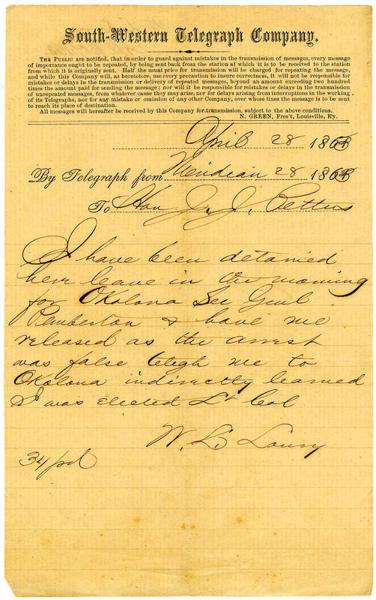 South-Western Telegraph Company.
THE PUBLIC are notified, that in order to guard against mistakes in the transmission of messages, every message
of importance ought to be repeated, by being sent back from the station at which it is to be received to the station
from which it is originally sent. Half the usual price for transmission will be charged for repeating the message,
and while this Company will, as heretofore, use every precaution to insure correctness, it will not be responsible for
mistakes or delays in the transmission or delivery of repeated messages, beyond an amount exceeding two hundred
times the amount paid for sending the message; nor will it be responsible for mistakes or delays in the transmission
of unrepeated messages, from whatever cause they may arise, nor for delays arising from interruptions in the working
of its Telegraphs, nor for any mistake or omission of any other Company, over whose lines the message is to be sent
to reach its place of destination.
All messages will hereafter be received by this Company for transmission, subject to the above conditions.
N. GREEN, Pres't, Louisville, Ky.
April 28 186
By Telegraph from Meridean 28 186
To Hon J. J. Pettus
I have been detained
here leave in the morning
for Okalona See Genl
Pemberton & have me
released as the arrest
was false telegh me to
Okolona indirectly learned
I was elected Lt Col
W. L. Lowry
34/pd